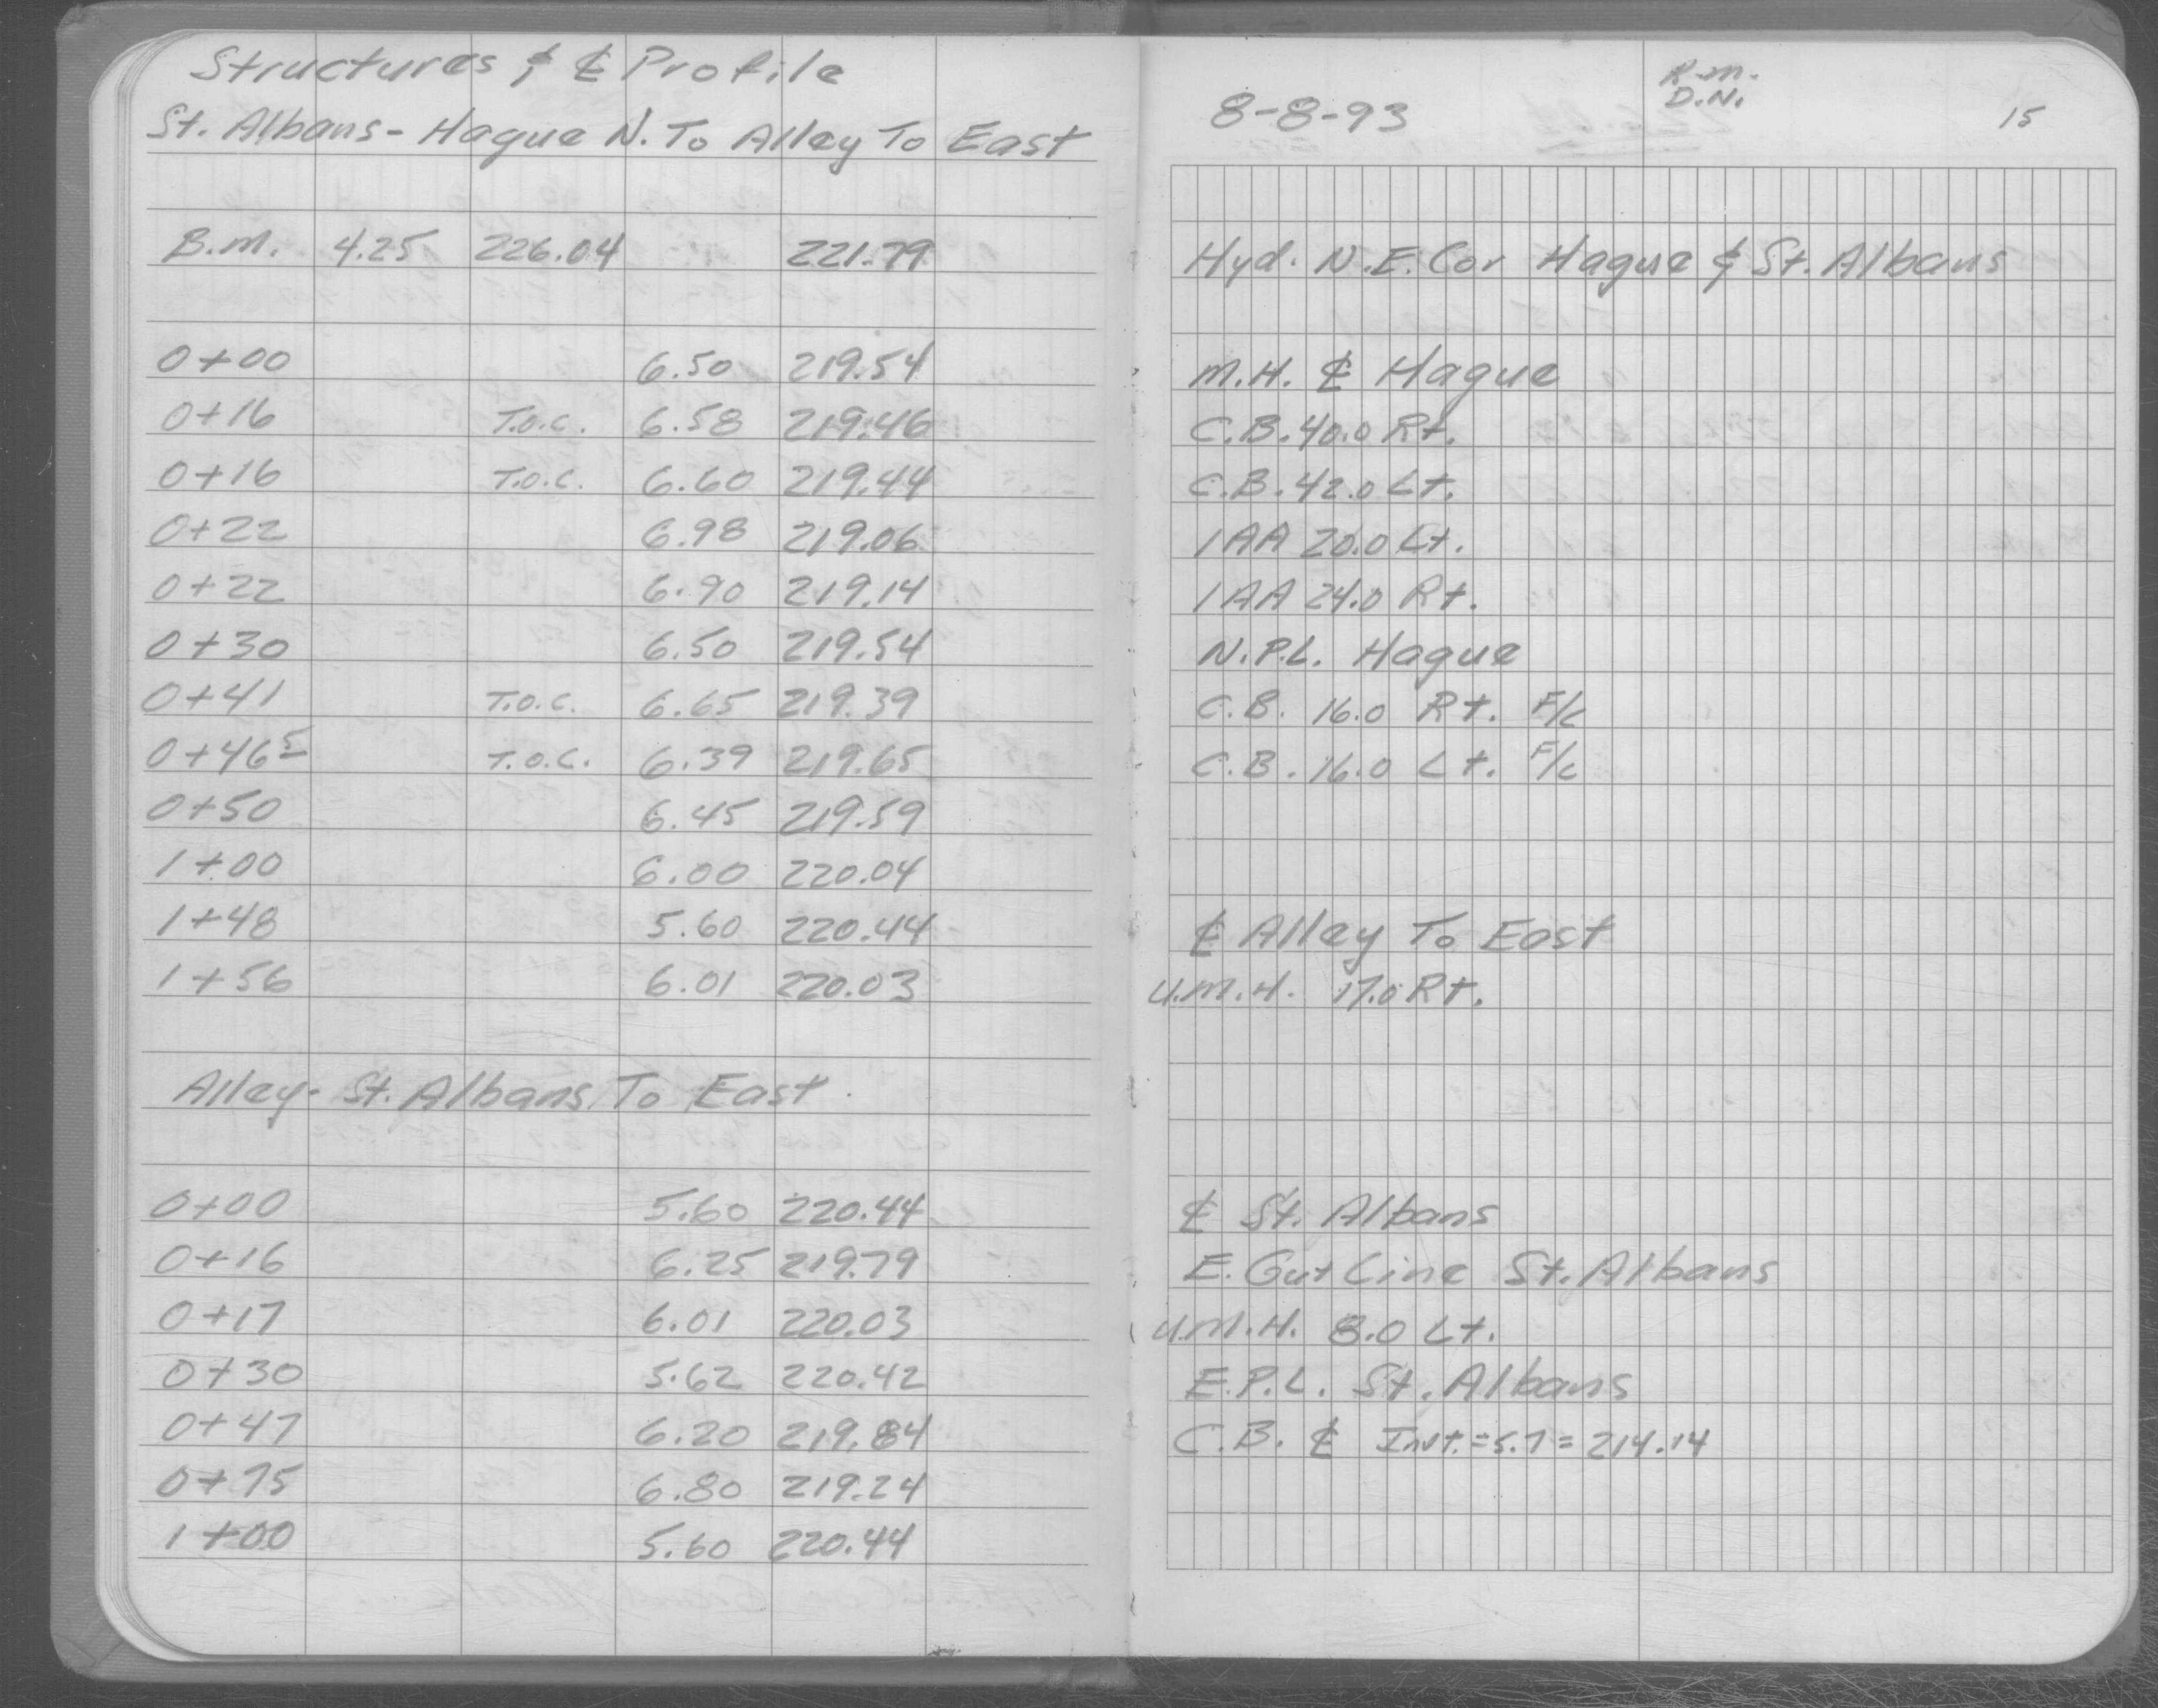 Structures & ℄ Profile
St. Albans - Hague N. To Alley To East
B.M. 4.25 226.04 221.79
0+00 6.50 219.54
0+16 T.O.C. 6.58 219.46
0+16 T.O.C. 6.60 219.44
0+22 6.98 219.06
0+22 6.90 219.14
0+30 6.50 219.54
0+41 T.O.C. 6.65 219.39
0+46⁵ T.O.C. 6.39 219.65
0+50 6.45 219.59
1+00 6.00 220.04
1+48 5.60 220.44
1+56 6.01 220.03
Alley - St. Albans To East
0+00 5.60 220.44
0+16 6.25 219.79
0+17 6.01 220.03
0+30 5.62 220.42
0+47 6.20 219.84
0+75 6.80 219.24
1+00 5.60 220.44
R.M.
D.N.
8-8-93 15
Hyd. N.E. Cor Hague & St. Albans
M.H. ℄ Hague
C.B. 40.0 Rt.
C.B. 42.0 Lt.
1AA 20.0 Lt.
1AA 24.0 Rt.
N.P.L. Hague
C.B. 16.0 Rt. F/C
C.B. 16.0 Lt. F/C
℄ Alley To East
U.M.H. 17.0 Rt.
℄ St. Albans
E. Gut Line St. Albans
U.M.H. 8.0 Lt.
E.P.L. St. Albans
C.B. ℄ Invt. = 5.7 = 214.14